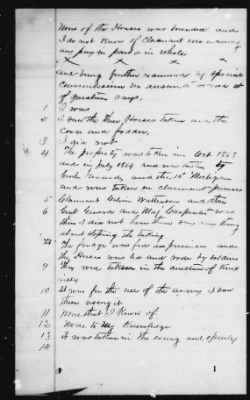 None of the Horses was branded and
I do not know of Claimant ever receiving
any pay in part or in whole
x x x x
and being further examined by special
Commissioner in answer to
of question says.
1 I was
2 I saw the Horses taken and the
Corn and fodder.
3 I did not
4 The property was taken in Oct 1863
and in July 1864 and was taken by
and the 10th Michigan
and was taken on claimant premises
5 Claimant Calvin and others
6 Genl and Maj Carpenter was
there I did not hear them say any thing
about stopping the taking
The forage was fed on premises and
the Horses was led and rode by soldiers
9 They were taken in the direction of Knox
ville
10 It was for the use of the army I saw
them using it
11 None that I know of
12 None to My Knowledge
13 It was taken in the evening and openly
14